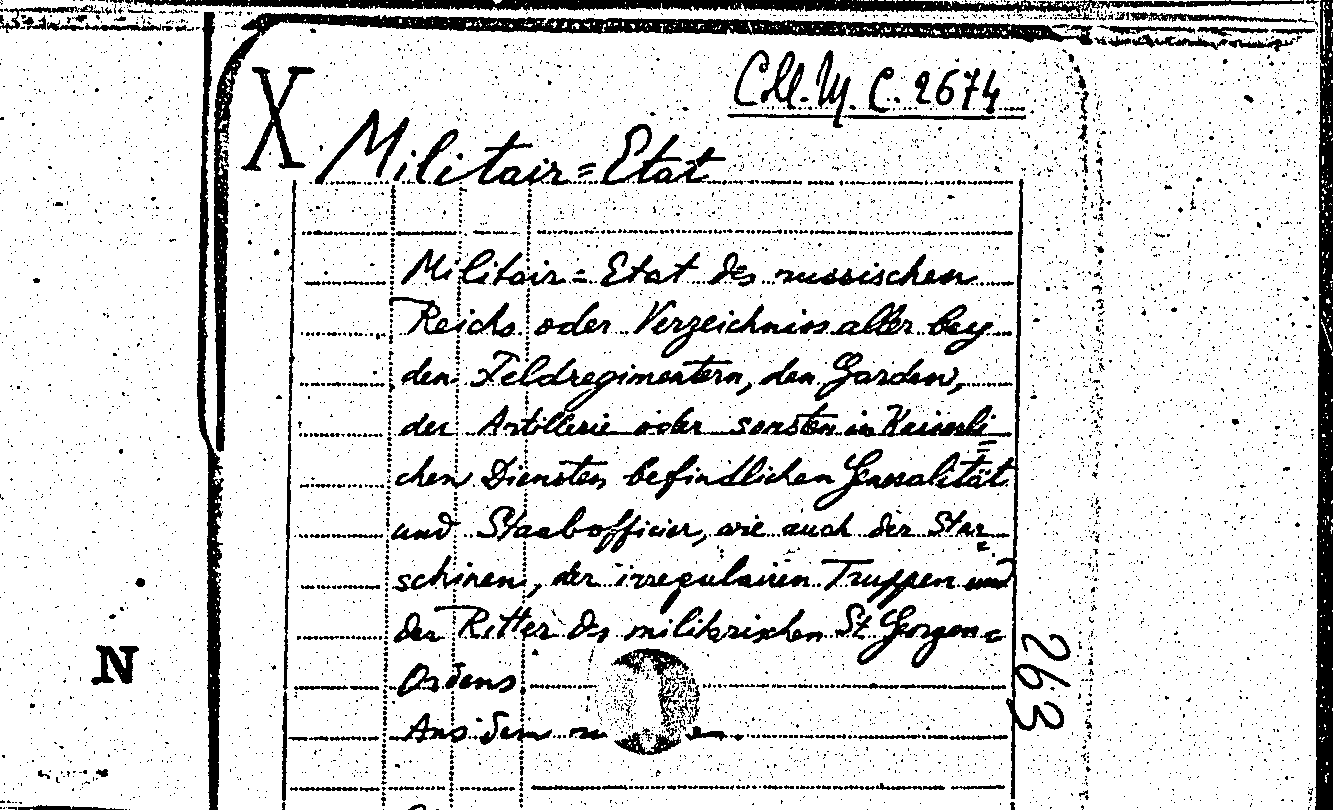 Coll. M. C. 2674
X Militair=Etat
Militair=Etat des russischen
Reichs oder Verzeichniss aller bey
den Feldregimentern, den Garden,
der Artillerie oder sonsten in Kaiserli=
chen Diensten befindlichen Generalität
und Staabofficier, wie auch der Star=
schinen, der irregulairen Truppen und
der Ritter des militärischen St Georgen=
Ordens
Aus dem
263
N